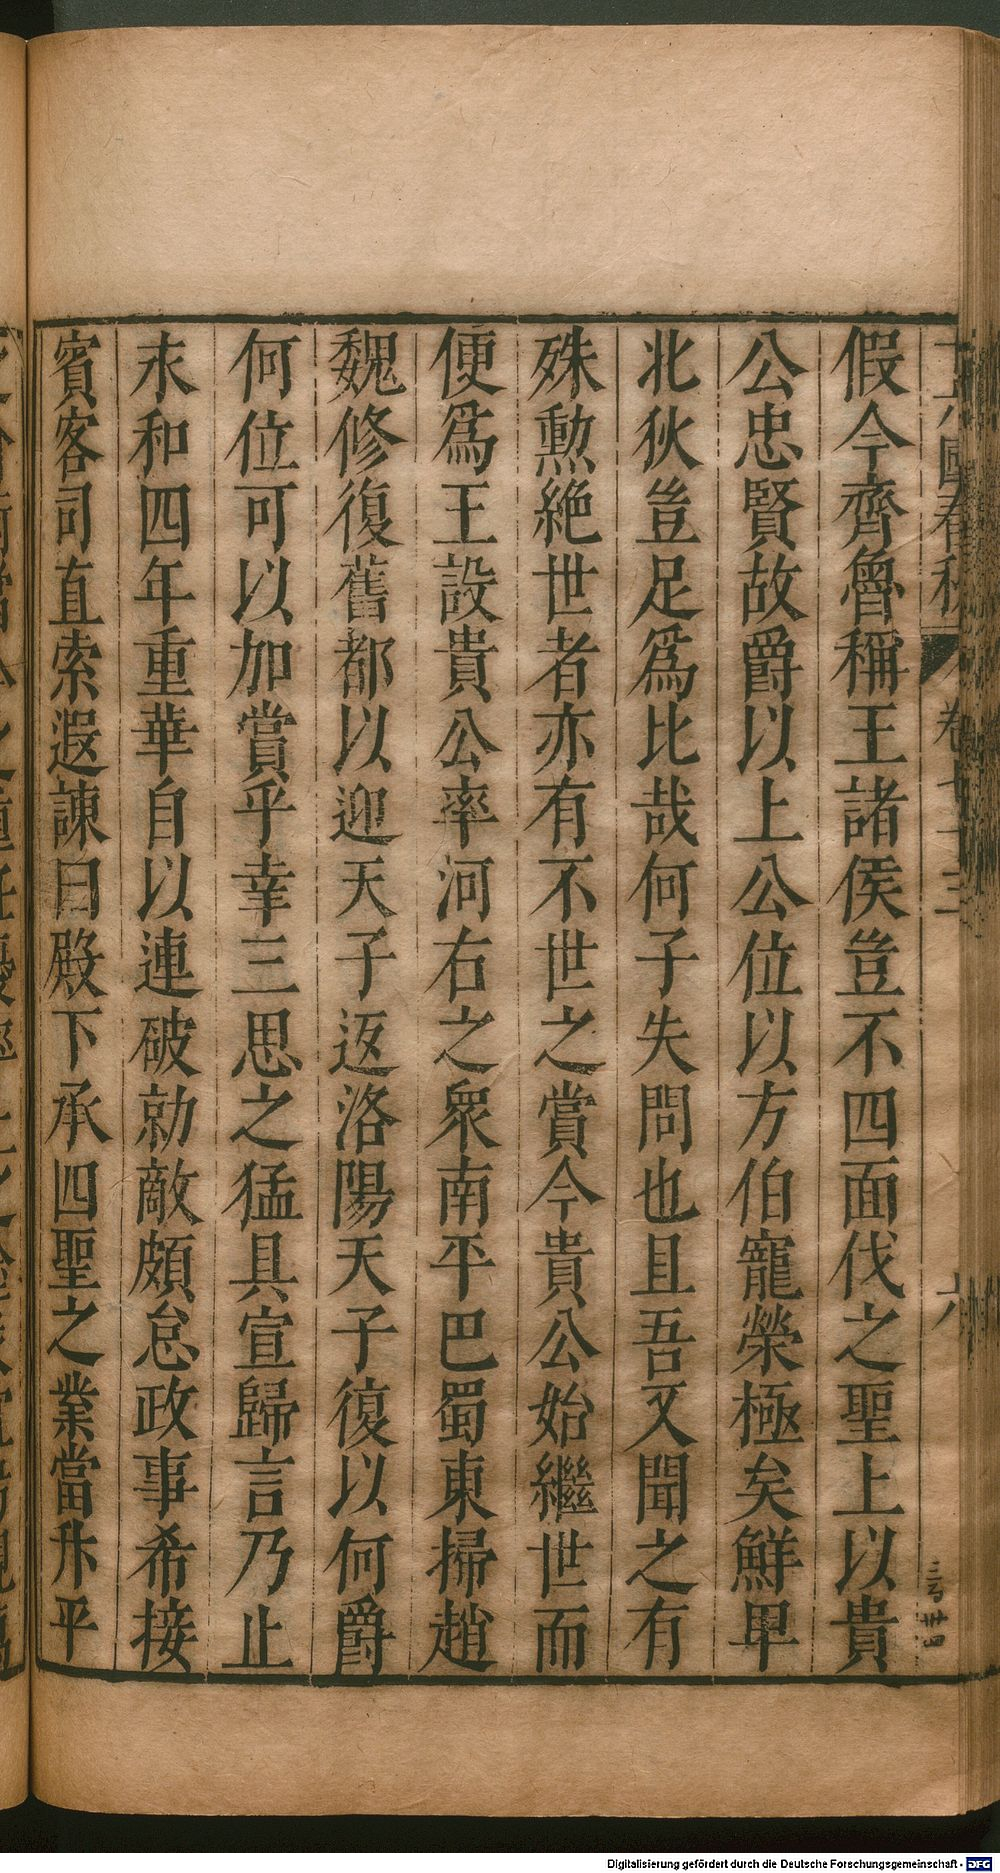 十六國春秋 卷七十三 六
假令齊魯稱王諸侯豈不四面伐之聖上以貴
公忠賢故爵以上公位以方伯寵榮極矣鮮卑
北狄豈足爲比哉何子失問也且吾又聞之有
殊勲絶世者亦有不世之賞今貴公始繼世而
便爲王設貴公率河右之衆南平巴蜀東掃趙
魏修復舊都以迎天子返洛陽天子復以何爵
何位可以加賞乎幸三思之猛具宣歸言乃止
永和四年重華自以連破勍敵頗怠政事希接
賓客司直索遐諫曰殿下承四聖之業當升平
Digitalisierung gefördert durch die Deutsche Forschungsgemeinschaft - DFG